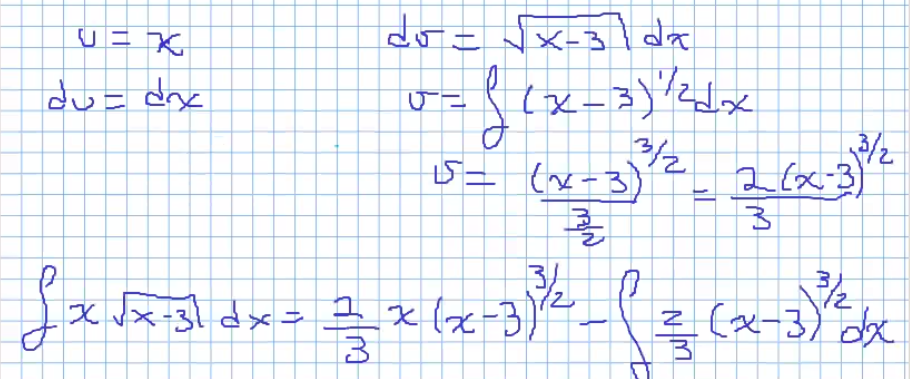 u = x    dv = √(x-3) dx
du = dx    v = ∫ (x-3)^1/2 dx
v = (x-3)^3/2 / (3/2) = 2(x-3)^3/2 / 3
∫ x √(x-3) dx = 2/3 x (x-3)^3/2 - ∫ 2/3 (x-3)^3/2 dx